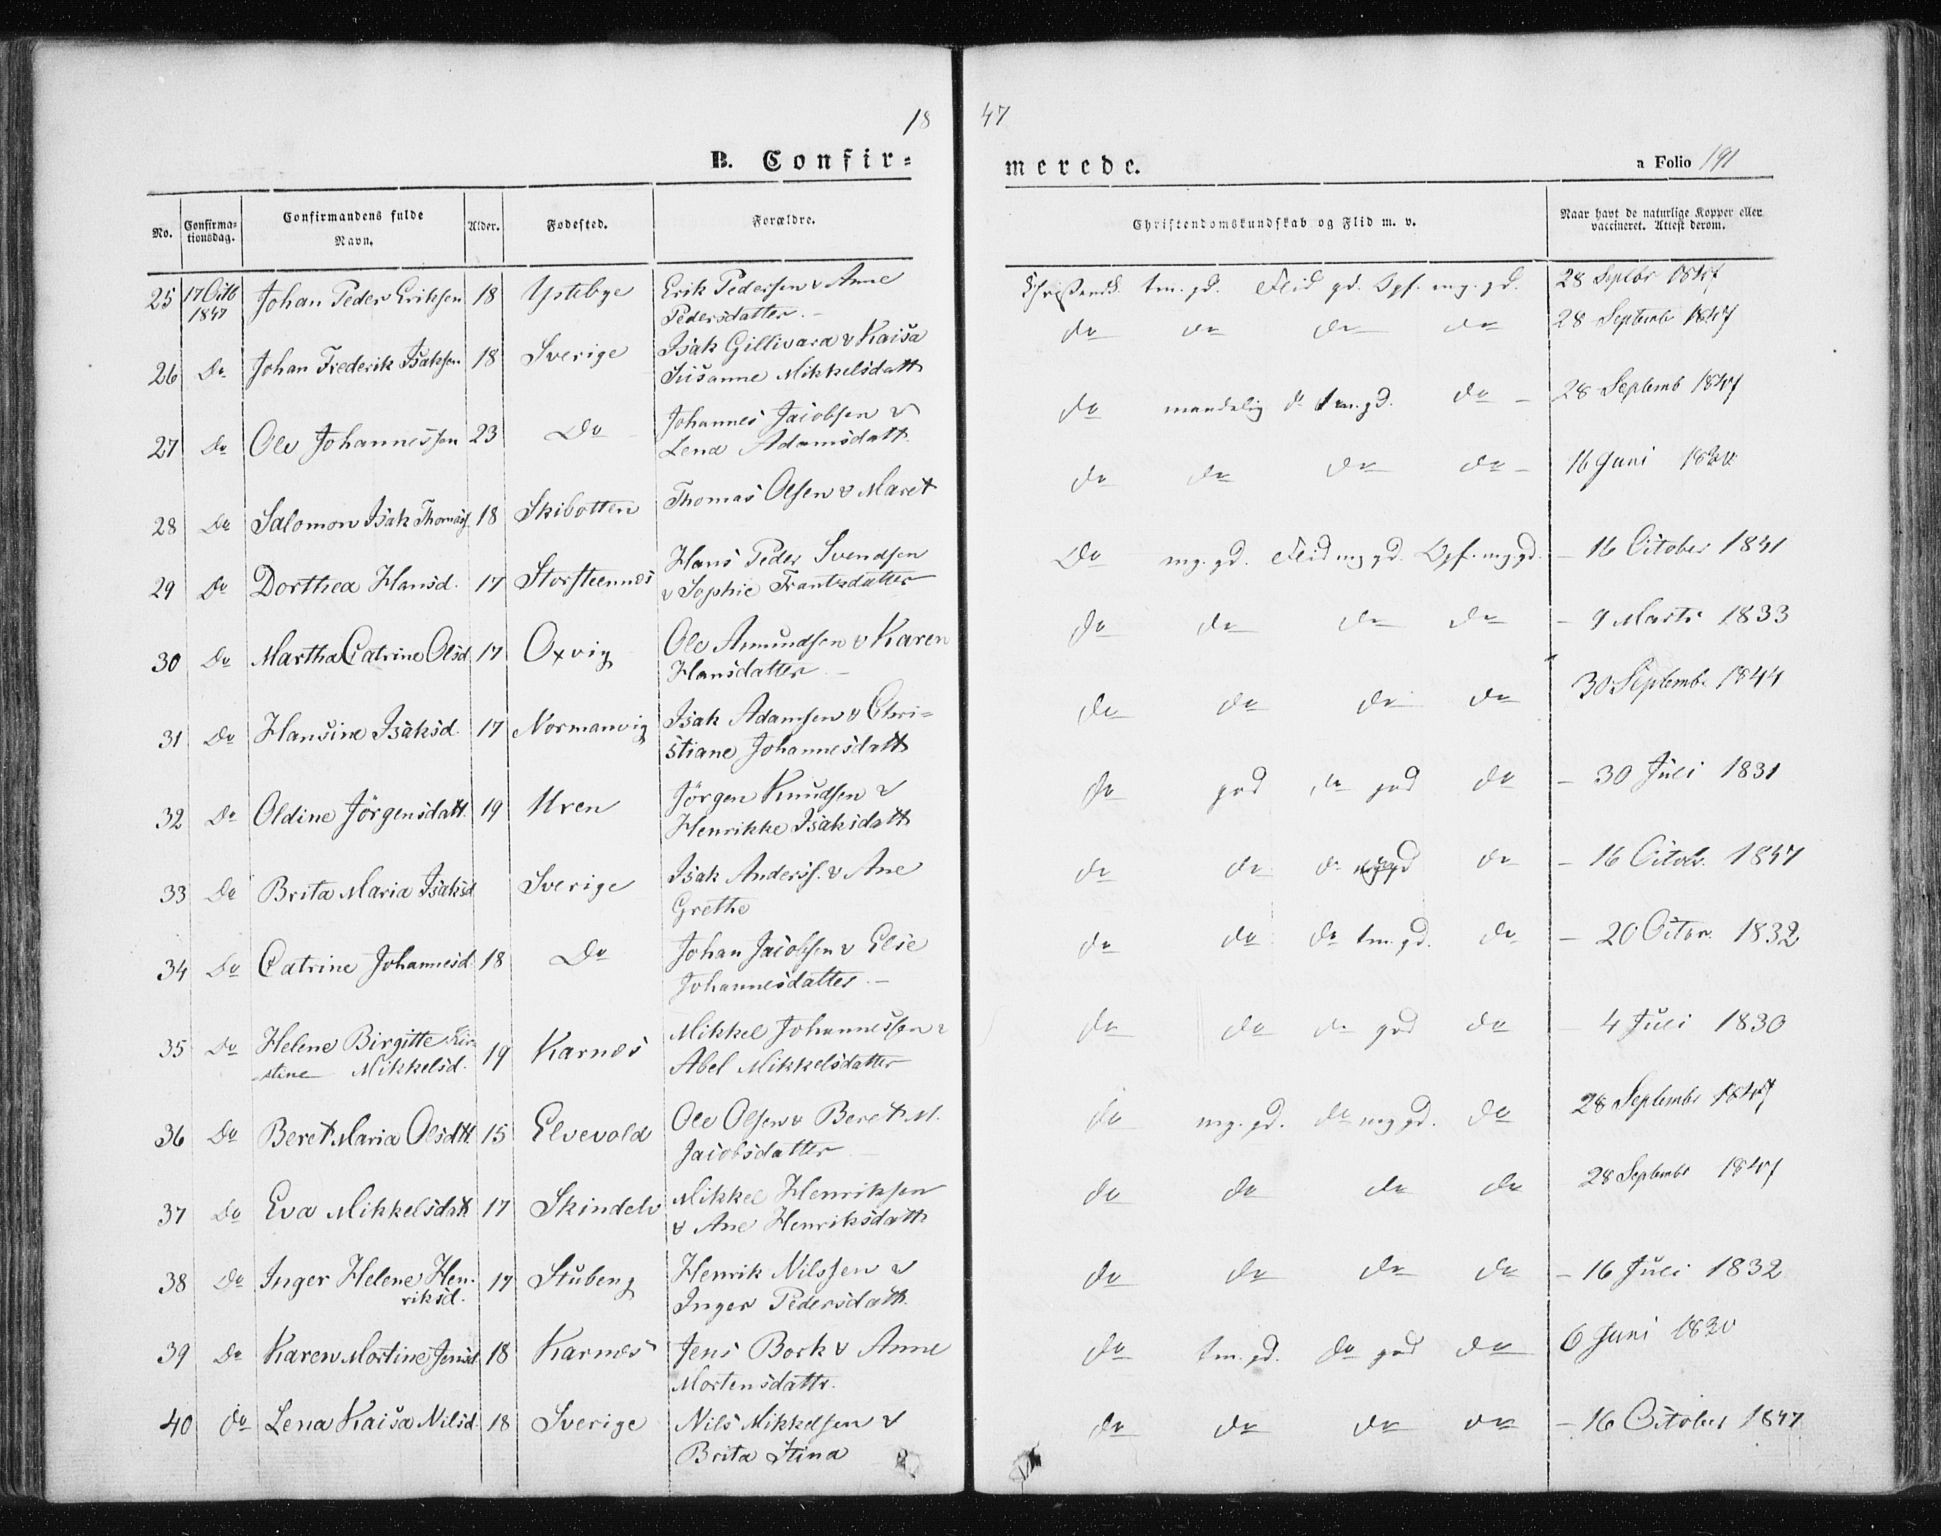 18
47
B. Confir-
merede.
a Folio 191
No.
Confirma-
tionsdag.
Confirmandens fulde
Navn.
Alder.
Fødested.
Forældre.
Christendomskundskab og Flid m. v.
Naar havt de naturlige Kopper eller
vaccineret. Attest derom.
25 17 Octb 1847 Johan Peder Eriksen 18 Ystebye Erik Pedersen v Ane
Pedersdatter.
tm. gd. Flid gd. Opf. mg. gd. 28 Septbr 1847
26 Do Johan Frederik Isaksen 18 Sverige Isak Gillivara v Kaisa
Susanne Mikkelsdatt
do do do do 28 Septembr 1847
27 Do Ole Johannessen 23 Do Johannes Jacobsen v
Lena Adamsdatt.
do maadelig do tm. gd. do - 28 Septemb 1847
28 Do Salomon Isak Thomass. 18 Skibotten Thomas Olsen v Maret
do do do do - 16 Juni
29 Do Dorthea Hansd. 17 Storsteennes Hans Peder Svendsen
v Sophie Frantsdatter
Do mg. gd. Flid mg gd. Opf. mg. gd. - 16 October 1841
30 Do Martha Catrine Olsd. 17 Oxvig Ole Amundsen v Karen
Hansdatter. -
do do do do - 9 Marts 1833
31 Do Hansine Isaksd. 17 Normanvig Isak Adamsen v Chri-
stiane Johannesdatt
do do do do 30 Septembr 1844
32 Do Oldine Jörgensdatt. 19 Uren Jörgen Knudsen v
Henrikke Isaksdatt
do god do god do - 30 Juli 1831
33 Do Brita Maria Isaksd Sverige Isak Anderss. v Ane
Grethe
do do do do - 16 Octob. 1847
34 Do Catrine Johannesd. 18 Do Johan Jacobsen v Else
Johannesdatter. -
do do do tm. gd. do - 20 Octbr. 1832
35 Do Helene Birgitte Kir-
stine Mikkelsd. 19 Karnes Mikkel Johannessen v
Abel Mikkelsdatter
do do do god do - 4 Juli 1830
36 Do Beret Maria Olsdtt. 15 Elvevold Ole Olsen v Beret M.
Jacobsdatter
do mg. gd. do mg gd. do 28 Septembr 1847
37 Do Eva Mikkelsdatt 17 Skindelv Mikkel Henriksen
v Ane Henriksdatt
do do do do 28 Septembr 1847
38 Do Inger Helene Hen-
riksd. 17 Stubeng Henrik Nilssen v
Inger Pedersdatt.
do do do do - 16 Juli 1832
39 Do Karen Mortine Jensd 18 Karnes Jens Bork v Anne
Mortensdattr.
do tm. gd. do god do 6 Juni 1830
40 do Lena Kaisa Nilsd. 18 Sverige Nils Mikkelsen v
Brita Stina
do do do do - 16 October 1847